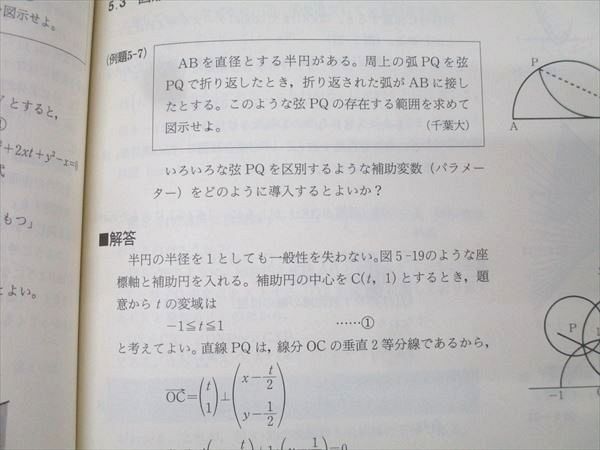 5.3
図示せよ。
(例題5-7)
ABを直径とする半円がある。周上の弧PQを弦
PQで折り返したとき，折り返された弧がABに接し
たとする。このような弦PQの存在する範囲を求めて
図示せよ。
(千葉大)
P
A
とすると，
①
²+2xt+y²-x=0
式
もつ」
よい。
いろいろな弦PQを区別するような補助変数（パラメー
ター）をどのように導入するとよいか？
■解答
半円の半径を1としても一般性を失わない。図5-19のような座
標軸と補助円を入れる。補助円の中心をC(t, 1)とするとき，題
意からtの変域は
-1≦t≦1 ……①
と考えてよい。直線PQは，線分OCの垂直2等分線であるから，
OC=(t 1)⊥(x-t/2 y-1/2)
P
-1